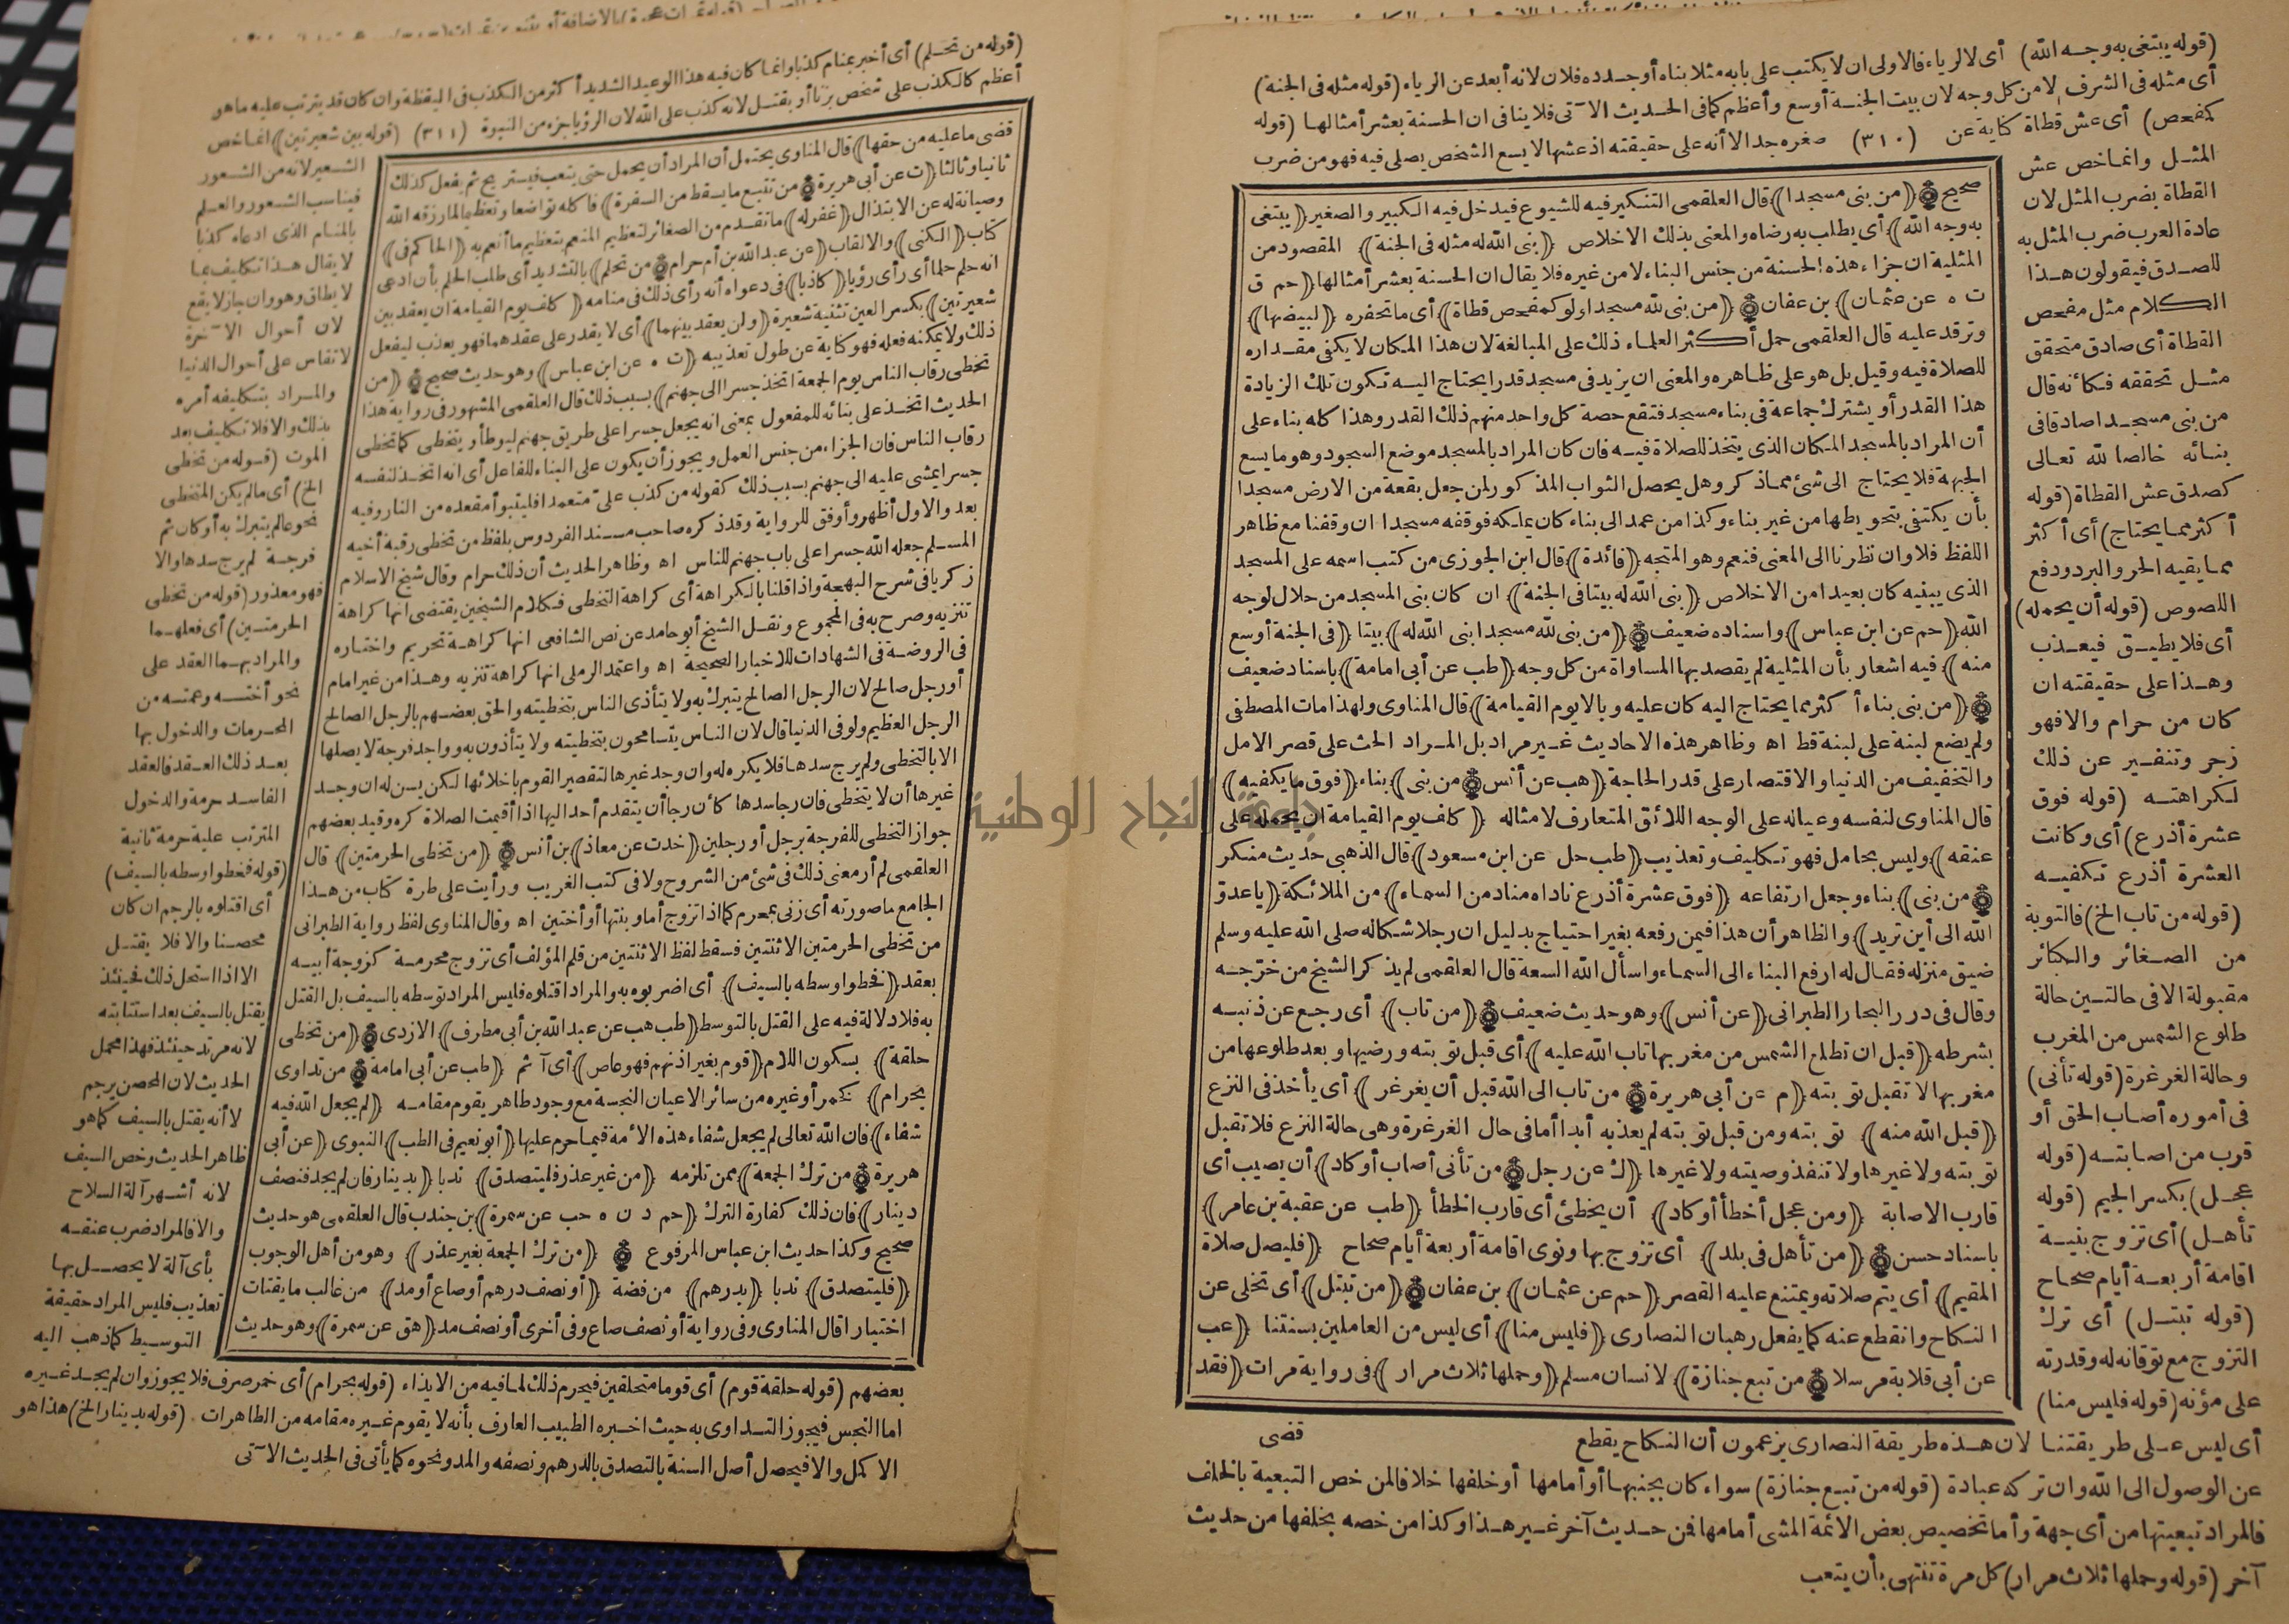 (قوله يبتغى به وجه الله) أى لا لرياء فالاولى ان لا يكتب على بابه مثلا بناه أو جدده فلان لانه أبعد عن الرياء (قوله مثله فى الجنة)
أى مثله فى الشرف لا من كل وجه لان بيت الجنة أوسع وأعظم كما فى الحديث الآتى فلا ينافى ان الحسنة بعشر أمثالها (قوله
كمفحص) أى عش قطاة كناية عن (٣١٠) صغره جدا الا أنه على حقيقته اذ عشها لا يسع الشخص يصلى فيه فهو من ضرب
المثل وانما خص عش
القطاة بضرب المثل لان
عادة العرب ضرب المثل به
للصدق فيقولون هذا
الكلام مثل مفحص
القطاة أى صادق متحقق
مثل تحققه فكأنه قال
من بنى مسجدا صادقا فى
بنائه خالصا لله تعالى
كصدق عش القطاة (قوله
أكثر مما يحتاج) أى أكثر
مما يقيه الحر والبرد ودفع
اللصوص (قوله أن يحمله)
أى فلا يطيق فيعذب
وهذا على حقيقته ان
كان من حرام والا فهو
زجر وتنفير عن ذلك
لكراهته (قوله فوق
عشرة أذرع) أى وكانت
العشرة أذرع تكفيه
(قوله من تاب الخ) فالتوبة
من الصغائر والكبائر
مقبولة الا فى حالتين حالة
طلوع الشمس من المغرب
وحالة الغرغرة (قوله تأنى)
فى أموره أصاب الحق أو
قرب من اصابته (قوله
عجل) بكسر الجيم (قوله
تأهل) أى تزوج بنية
اقامة أربعة أيام صحاح
(قوله تبتل) أى ترك
التزوج مع توقانه له وقدرته
على مؤنه (قوله فليس منا)
صحيح (من بنى مسجدا) قال العلقمى التنكير فيه للشيوع فيدخل فيه الكبير والصغير (يبتغى
به وجه الله) أى يطلب به رضاه والمعنى بذلك الاخلاص (بنى الله له مثله فى الجنة) المقصود من
المثلية ان جزاء هذه الحسنة من جنس البناء لا من غيره فلا يقال ان الحسنة بعشر أمثالها (حم ق
ت ه عن عثمان) بن عفان (من بنى لله مسجدا ولو كمفحص قطاة) أى ما تحفره (لبيضها)
وترقد عليه قال العلقمى حمل أكثر العلماء ذلك على المبالغة لان هذا المكان لا يكفى مقداره
للصلاة فيه وقيل بل هو على ظاهره والمعنى ان يزيد فى مسجد قدرا يحتاج اليه تكون تلك الزيادة
هذا القدر أو يشترك جماعة فى بناء مسجد فتقع حصة كل واحد منهم ذلك القدر وهذا كله بناء على
أن المراد بالمسجد المكان الذى يتخذ للصلاة فيه فان كان المراد بالمسجد موضع السجود وهو ما يسع
الجبهة فلا يحتاج الى شئ مما ذكر وهل يحصل الثواب المذكور لمن جعل بقعة من الارض مسجدا
بأن يكتفى بتحويطها من غير بناء وكذا من عمد الى بناء كان يملكه فوقفه مسجدا ان وقفنا مع ظاهر
اللفظ فلا وان نظرنا الى المعنى فنعم وهو المتجه (فائدة) قال ابن الجوزى من كتب اسمه على المسجد
الذى يبنيه كان بعيدا من الاخلاص (بنى الله له بيتا فى الجنة) ان كان بنى المسجد من حلال لوجه
الله (حم عن ابن عباس) واسناده ضعيف (من بنى لله مسجدا بنى الله له) بيتا (فى الجنة أوسع
منه) فيه اشعار بأن المثلية لم يقصد بها المساواة من كل وجه (طب عن أبى امامة) باسناد ضعيف
(من بنى بناء أكثر مما يحتاج اليه كان عليه وبالا يوم القيامة) قال المناوى ولهذا مات المصطفى
ولم يضع لبنة على لبنة قط اه وظاهر هذه الاحاديث غير مراد بل المراد الحث على قصر الامل
والتخفيف من الدنيا والاقتصار على قدر الحاجة (هب عن أنس من بنى) بناء (فوق ما يكفيه)
قال المناوى لنفسه وعياله على الوجه اللائق المتعارف لامثاله (كلف يوم القيامة ان يحمله على
عنقه) وليس بحامل فهو تكليف وتعذيب (طب حل عن ابن مسعود) قال الذهبى حديث منكر
(من بنى) بناء وجعل ارتفاعه (فوق عشرة أذرع ناداه مناد من السماء) من الملائكة (يا عدو
الله الى أين تريد) والظاهر أن هذا فيمن رفعه بغير احتياج بدليل ان رجلا شكا له صلى الله عليه وسلم
ضيق منزله فقال له ارفع البناء الى السماء واسأل الله السعة قال العلقمى لم يذكر الشيخ من خرّجه
وقال فى درر البحار الطبرانى (عن أنس) وهو حديث ضعيف (من تاب) أى رجع عن ذنبه
بشرطه (قبل ان تطلع الشمس من مغربها تاب الله عليه) أى قبل توبته ورضيها وبعد طلوعها من
مغربها لا تقبل توبته (م عن أبى هريرة من تاب الى الله قبل أن يغرغر) أى يأخذ فى النزع
(قبل الله منه) توبته ومن قبل توبته لم يعذبه أبدا أما فى حال الغرغرة وهى حالة النزع فلا تقبل
توبته ولا غيرها ولا تنفذ وصيته ولا غيرها (ك عن رجل من تأنى أصاب أو كاد) أن يصيب أى
قارب الاصابة (ومن عجل أخطأ أو كاد) أن يخطئ أى قارب الخطأ (طب عن عقبة بن عامر)
باسناد حسن (من تأهل فى بلد) أى تزوج بها ونوى اقامة أربعة أيام صحاح (فليصل صلاة
المقيم) أى يتم صلاته ويمتنع عليه القصر (حم عن عثمان) بن عفان (من تبتل) أى تخلى عن
النكاح وانقطع عنه كما يفعل رهبان النصارى (فليس منا) أى ليس من العاملين بسنتنا (عب
عن أبى قلابة مرسلا من تبع جنازة) لانسان مسلم (وحملها ثلاث مرار) فى رواية مرات (فقد
قضى
أى ليس على طريقتنا لان هذه طريقة النصارى يزعمون أن النكاح يقطع
عن الوصول الى الله وان تركه عبادة (قوله من تبع جنازة) سواء كان بجنبها أو أمامها أو خلفها خلافا لمن خص التبعية بالخلف
فالمراد تبعيتها من أى جهة وأما تخصيص بعض الائمة المشى أمامها فمن حديث آخر غير هذا وكذا من خصه بخلفها من حديث
آخر (قوله وحملها ثلاث مرار) كل مرة تنتهى بأن يتعب
(قوله من تحلم) أى أخبر بمنام كذبا وانما كان فيه هذا الوعيد الشديد أكثر من الكذب فى اليقظة وان كان قد يترتب عليه ما هو
أعظم كالكذب على شخص بزنا أو بقتل لانه كذب على الله لان الرؤيا جزء من النبوة (٣١١) (قوله بين شعيرتين) انما خص
الشعير لانه من الشعور
فيناسب الشعور والعلم
بالمنام الذى ادعاه كذبا
لا يقال هذا تكليف بما
لا يطاق وهو وان جاز لا يقع
لان أحوال الآخرة
لا تقاس على أحوال الدنيا
والمراد بتكليفه أمره
بذلك والا فلا تكليف بعد
الموت (قوله من تخطى
الخ) أى ما لم يكن المتخطى
نحو عالم يتبرك به أو كان ثم
فرجة لم يرج سدها والا
فهو معذور (قوله من تخطى
الحرمتين) أى فعلهما
والمراد بهما العقد على
نحو أخته وعمته من
المحرمات والدخول بها
بعد ذلك العقد فالعقد
الفاسد حرمة والدخول
المترتب عليه حرمة ثانية
(قوله فخطوا وسطه بالسيف)
أى اقتلوه بالرجم ان كان
محصنا والا فلا يقتل
الا اذا استحل ذلك فحينئذ
يقتل بالسيف بعد استتابته
لانه مرتد حينئذ فهذا محمل
الحديث لان المحصن يرجم
لا أنه يقتل بالسيف كما هو
ظاهر الحديث وخص السيف
لانه أشهر آلة السلاح
والا فالمراد ضرب عنقه
بأى آلة لا يحصل بها
تعذيب فليس المراد حقيقة
التوسيط كما ذهب اليه
قضى ما عليه من حقها) قال المناوى يحتمل أن المراد أن يحمل حتى يتعب فيستريح ثم يفعل كذلك
ثانيا وثالثا (ت عن أبى هريرة من تتبع ما يسقط من السفرة) فأكله تواضعا وتعظيما لما رزقه الله
وصيانة له عن الابتذال (غفر له) ما تقدم من الصغائر لتعظيم المنعم بتعظيم ما أنعم به (الحاكم فى)
كتاب (الكنى) والالقاب (عن عبد الله بن أم حرام من تحلم) بالتشديد أى طلب الحلم بأن ادعى
انه حلم حلما أى رأى رؤيا (كاذبا) فى دعواه أنه رأى ذلك فى منامه (كلف يوم القيامة ان يعقد بين
شعيرتين) بكسر العين تثنية شعيرة (ولن يعقد بينهما) أى لا يقدر على عقدهما فهو يعذب ليفعل
ذلك ولا يمكنه فعله فهو كناية عن طول تعذيبه (ت ه عن ابن عباس) وهو حديث صحيح (من
تخطى رقاب الناس يوم الجمعة اتخذ جسرا الى جهنم) بسبب ذلك قال العلقمى المشهور فى رواية هذا
الحديث اتخذ على بنائه للمفعول بمعنى انه يجعل جسرا على طريق جهنم ليوطأ ويتخطى كما تخطى
رقاب الناس فان الجزاء من جنس العمل ويجوز أن يكون على البناء للفاعل أى انه اتخذ لنفسه
جسرا يمشى عليه الى جهنم بسبب ذلك كقوله من كذب علىّ متعمدا فليتبوأ مقعده من النار وفيه
بعد والاول أظهر وأوفق للرواية وقد ذكره صاحب مسند الفردوس بلفظ من تخطى رقبة أخيه
المسلم جعله الله جسرا على باب جهنم للناس اه وظاهر الحديث أن ذلك حرام وقال شيخ الاسلام
زكريا فى شرح البهجة واذا قلنا بالكراهة أى كراهة التخطى فكلام الشيخين يقتضى انها كراهة
تنزيه وصرح به فى المجموع ونقل الشيخ أبو حامد عن نص الشافعى انها كراهة تحريم واختاره
فى الروضة فى الشهادات للاخبار الصحيحة اه واعتمد الرملى انها كراهة تنزيه وهذا من غير امام
أو رجل صالح لان الرجل الصالح يتبرك به ولا يتأذى الناس بتخطيته والحق بعضهم بالرجل الصالح
الرجل العظيم ولو فى الدنيا قال لان الناس يتسامحون بتخطيته ولا يتأذون به وواجد فرجة لا يصلها
الا بالتخطى ولم يرج سدها فلا يكره له وان وجد غيرها لتقصير القوم باخلائها لكن يسن له ان وجد
غيرها أن لا يتخطى فان رجا سدها كأن رجا أن يتقدم أحد اليها اذا أقيمت الصلاة كره وقيد بعضهم
جواز التخطى للفرجة برجل أو رجلين (خد ت عن معاذ) بن أنس (من تخطى الحرمتين) قال
العلقمى لم أر معنى ذلك فى شئ من الشروح ولا فى كتب الغريب ورأيت على طرة كتاب من هذا
الجامع ما صورته أى زنى بمحرم كما اذا تزوج أما وبنتها أو أختين اه وقال المناوى لفظ رواية الطبرانى
من تخطى الحرمتين الاثنتين فسقط لفظ الاثنتين من قلم المؤلف أى تزوج محرمة كزوجة أبيه
بعقد (فخطوا وسطه بالسيف) أى اضربوه به والمراد اقتلوه فليس المراد توسطه بالسيف بل القتل
به فلا دلالة فيه على القتل بالتوسط (طب هب عن عبد الله بن أبى مطرف) الازدى (من تخطى
حلقة) بسكون اللام (قوم بغير اذنهم فهو عاص) أى آثم (طب عن أبى امامة من تداوى
بحرام) كخمر أو غيره من سائر الاعيان النجسة مع وجود طاهر يقوم مقامه (لم يجعل الله فيه
شفاء) فان الله تعالى لم يجعل شفاء هذه الامة فيما حرم عليها (أبو نعيم فى الطب) النبوى (عن أبى
هريرة من ترك الجمعة) ممن تلزمه (من غير عذر فليتصدق) ندبا (بدينار فان لم يجد فنصف
دينار) فان ذلك كفارة الترك (حم د ن ه حب عن سمرة) بن جندب قال العلقمى هو حديث
صحيح وكذا حديث ابن عباس المرفوع (من ترك الجمعة بغير عذر) وهو من أهل الوجوب
(فليتصدق) ندبا (بدرهم) من فضة (أو نصف درهم أو صاع أو مد) من غالب ما يقتات
اختيارا قال المناوى وفى رواية أو نصف صاع وفى أخرى أو نصف مد (هق عن سمرة) وهو حديث
بعضهم (قوله حلقة قوم) أى قوما متحلقين فيحرم ذلك لما فيه من الايذاء (قوله بحرام) أى خمر صرف فلا يجوز وان لم يجد غيره
اما النجس فيجوز التداوى به حيث اخبره الطبيب العارف بأنه لا يقوم غيره مقامه من الطاهرات (قوله بدينار الخ) هذا هو
الاكمل والا فيحصل أصل السنة بالتصدق بالدرهم ونصفه والمد ونحوه كما يأتى فى الحديث الآتى
جامعة النجاح الوطنية